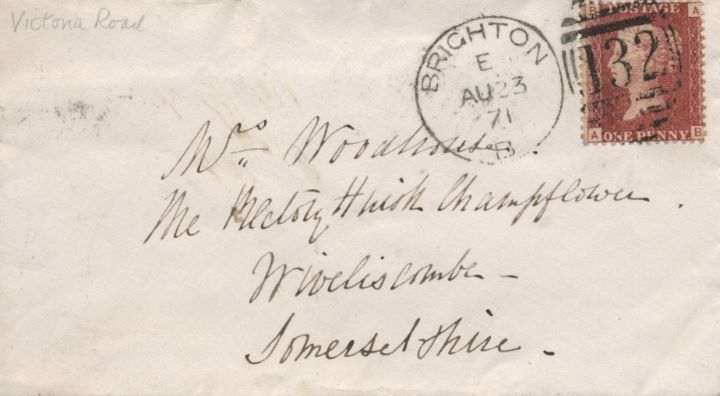 Victoria Road
BRIGHTON
E
AU 23
71
B
B POSTAGE A
132
A ONE PENNY B
Mrs Woodhouse
The Rectory Huish Champflower.
Wiveliscombe -
Somersetshire -